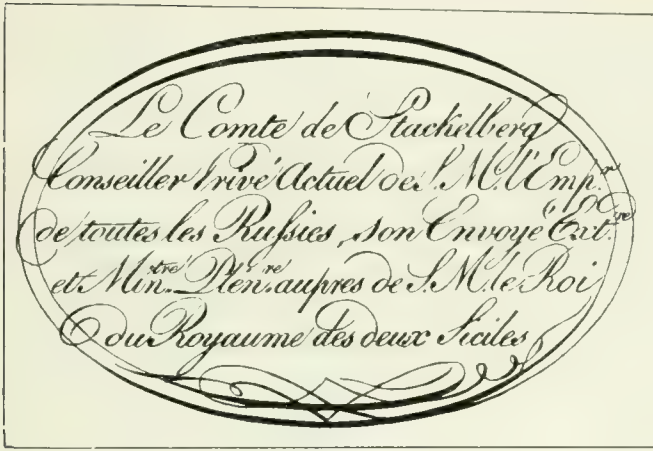 Le Comte de Stackelberg
Conseiller Privé Actuel de S. M. l'Emp.eur
de toutes les Russies, son Envoyé Ext.re
et Min.stre Plén.re aupres de S. M. le Roi
du Royaume des deux Siciles